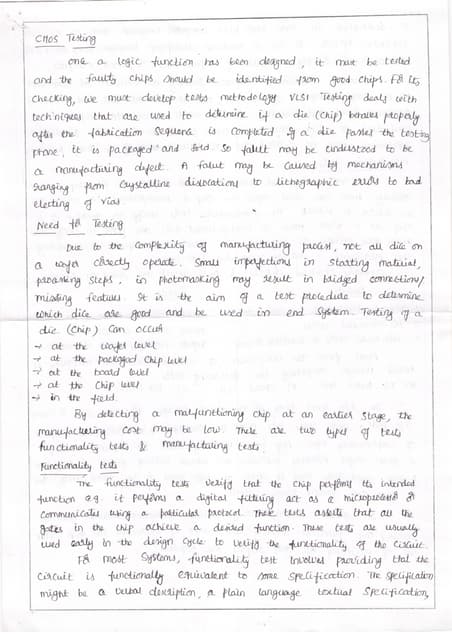 CMOS Testing
one a logic function has been designed, it must be tested
and the faulty chips should be identified from good chips. For its
checking, we must develop tests methodology VLSI Testing deals with
techniques that are used to determine if a die (chip) behaves properly
after the fabrication sequence is completed If a die passes the testing
phase, it is packaged and sold so fault may be understood to be
a manufacturing defect. A falut may be caused by mechanisms
ranging from crystalline dislocations to lithographic errors to bad
etecting of vias
Need for Testing
Due to the complexity of manufacturing process, not all dice on
a wafer correctly operate. Small imperfections in starting material,
processing steps, in photomasking may result in bridged connection/
missing features It is the aim of a test procedure to determine
which dice are good and be used in end system. Testing of a
die (chip) can occur
→ at the wafer level
→ at the packaged chip level
→ at the board level
→ at the chip level
→ in the field.
By detecting a malfunctioning chip at an earlier stage, the
manufacturing cost may be low. There are two types of tests
functionality tests & manufacturing tests.
Functionality tests
The functionality tests verify that the chip performs its intended
function e.g. it performs a digital filtering act as a microprocessor or
communicates using a particular protocol. These tests asserts that all the
gates in the chip achieve a desired function. These tests are usually
used early in the design cycle to verify the functionality of the circuit.
For most systems, functionality test involves providing that the
circuit is functionally equivalent to some specification. The specification
might be a verbal description, a plain language textual specification,